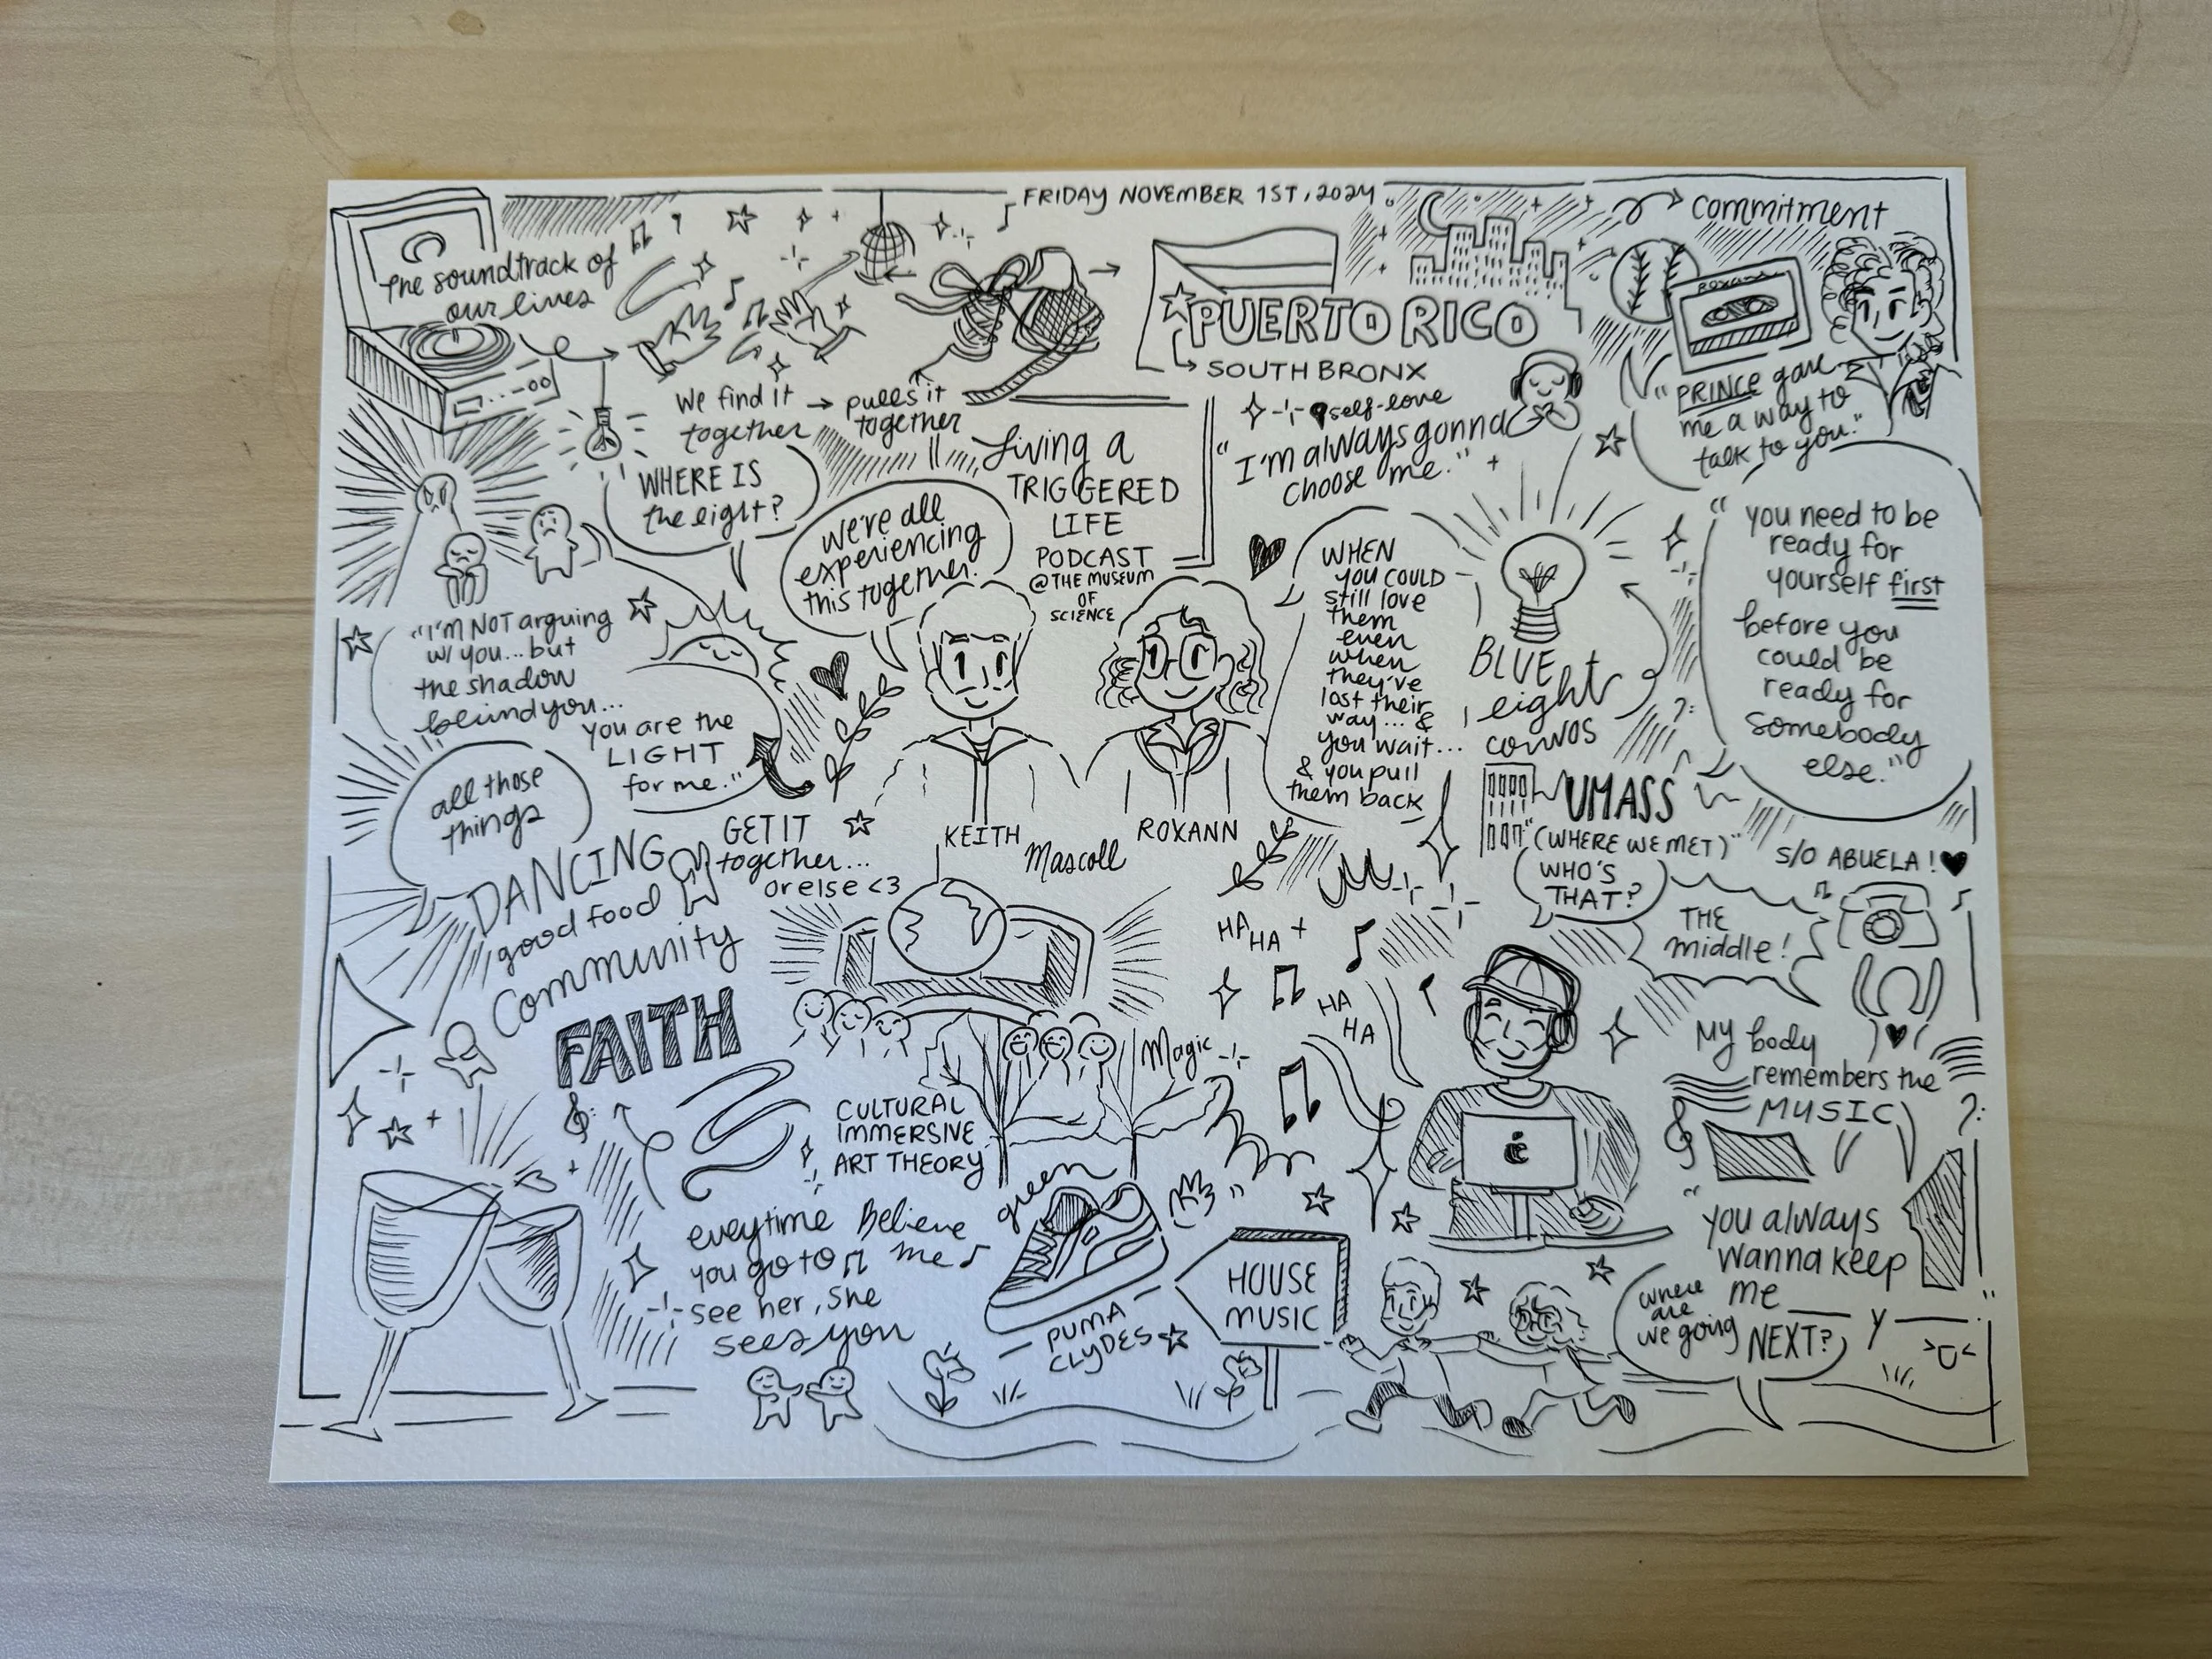 FRIDAY NOVEMBER 1ST, 2024
The soundtrack of
our lives
We find it
together
pulls it
together
PUERTO RICO
SOUTH BRONX
commitment
ROXANN
"PRINCE gave
me a way to
talk to you."
self-love
"I'm always gonna
choose me."
WHERE IS
the light?
we're all
experiencing
this together.
Living a
TRIGGERED
LIFE
PODCAST
@THE MUSEUM
OF
SCIENCE
WHEN
you COULD
still love
them
even
when
they've
lost their
way... &
you wait...
& you pull
them back
BLUE
light
convos
"you need to be
ready for
yourself first
before you
could be
ready for
somebody
else."
"I'M NOT arguing
w/ you... but
the shadow
behind you...
you are the
LIGHT
for me."
all those
things
GET IT
together...
or else <3
KEITH
ROXANN
Mascoll
UMASS
"(WHERE WE MET)"
WHO'S
THAT?
S/O ABUELA!
THE
middle!
DANCING
good food
Community
FAITH
HA
HA
HA
HA
Magic
My body
remembers the
MUSIC
CULTURAL
IMMERSIVE
ART THEORY
green
eveytime
you go to
see her, she
sees you
Believe
me
PUMA
CLYDES
HOUSE
MUSIC
"you always
wanna keep
me
Y
"
where
are
we going
NEXT?